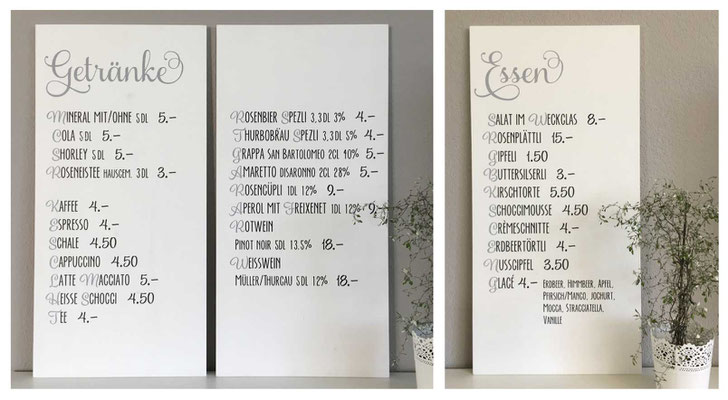 Getränke
Mineral mit/ohne 5dl 5.–
Cola 5dl 5.–
Shorley 5dl 5.–
Roseneistee hausgem. 3dl 3.–
Kaffee 4.–
Espresso 4.–
Schale 4.50
Cappuccino 4.50
Latte Macciato 5.–
Heisse Schoggi 4.50
Tee 4.–
Rosenbier Spezli 3,3dl 3% 4.–
Thurbobräu Spezli 3,3dl 5% 4.–
Grappa San Bartolomeo 2cl 40% 5.–
Amaretto Disaronno 2cl 28% 5.–
Rosencüpli 1dl 12% 9.–
Aperol mit Freixenet 1dl 12% 9.
Rotwein
Pinot Noir 5dl 13.5% 18.–
Weisswein
Müller/Thurgau 5dl 12% 18.–
Essen
Salat im Weckglas 8.–
Rosenplättli 15.–
Gipfeli 1.50
Buttersilserli 3.–
Kirschtorte 5.50
Schoggimousse 4.50
Cremeschnitte 4.–
Erdbeertörtli 4.–
Nussgipfel 3.50
Glacé 4.– Erdbeer, Himmbeer, Apfel,
Pfirsich/Mango, Joghurt,
Mocca, Stracciatella,
Vanille